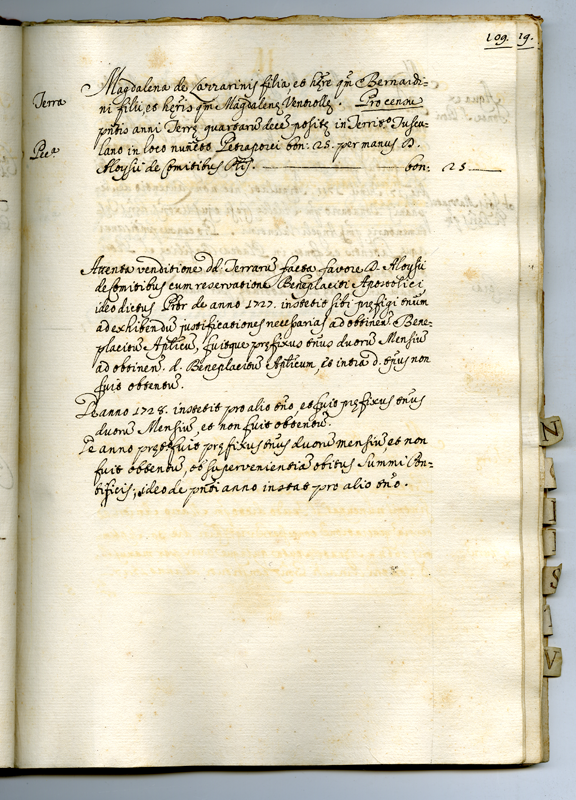 109. 19.
Magdalena de Lazzarinis filia, et hęre qm̃ Bernardi=
Terra
ni filii, et hęris qm̃ Magdalenę Ventrollę. Pro censu
pñtis anni Terrę quartarũ decẽ positę in Territo Tuscu=
lano in loco nuñto Petraporci bon: 25. per manus D.
Aloysii de Comitibus — bon: 25 —
Attenta venditione dd. Terrarũ facta favore D. Aloysii
de Comitibus cum reservatione Beneplaciti Apostolici
ideo dictus de anno 1727. institit sibi pręfigi tñum
ad exhibendũ justificationes necessarias ad obtinen. Bene=
placitũ Aplicũ, fuitque pręfixus tñus duorũ Mensiũ
ad obtinen. d. Beneplacitũ Aplicum, et intra d. tñus non
fuit obtentũ.
De anno 1728. institit pro alio tñō, et fuit pręfixus tñus
duorũ Mensiũ, et non fuit obtentũ.
De anno pręt. fuit pręfixus tñus duorũ mensiũ, et non
fuit obtentũ, ob supervenientiã obitus Summi Pon=
tificis; ideo de pñti anno instat pro alio tñō.
N
S
V